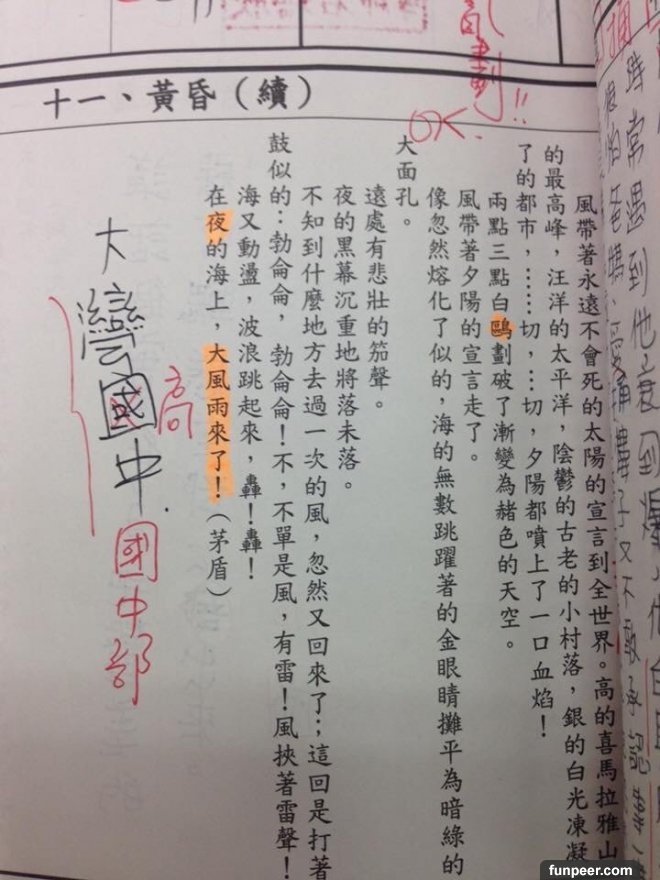 十一、黃昏（續）
OK.
風帶著永遠不會死的太陽的宣言到全世界。高的喜馬拉雅山
的最高峰，汪洋的太平洋，陰鬱的古老的小村落，銀的白光凍凝
了的都市，……切，…切，夕陽都噴上了一口血焰！
兩點三點白鷗劃破了漸變為赭色的天空。
風帶著夕陽的宣言走了。
像忽然熔化了似的，海的無數跳躍著的金眼睛攤平為暗綠的
大面孔。
遠處有悲壯的笳聲。
夜的黑幕沉重地將落未落。
不知到什麼地方去過一次的風，忽然又回來了；這回是打著
鼓似的：勃侖侖，勃侖侖！不，不單是風，有雷！風挾著雷聲！
海又動盪，波浪跳起來，轟！轟！
在夜的海上，大風雨來了！（茅盾）
高
大灣國中
國中部
時常遇到他
funpeer.com